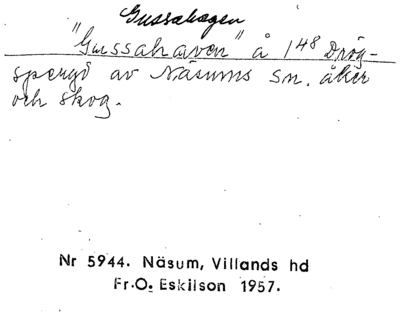 Gussahagen
"Gussahaven" å 1⁴⁸ Drög-
speryd av Näsums sn. åker
och skog.
Nr 5944. Näsum, Villands hd
Fr.O. Eskilson 1957.